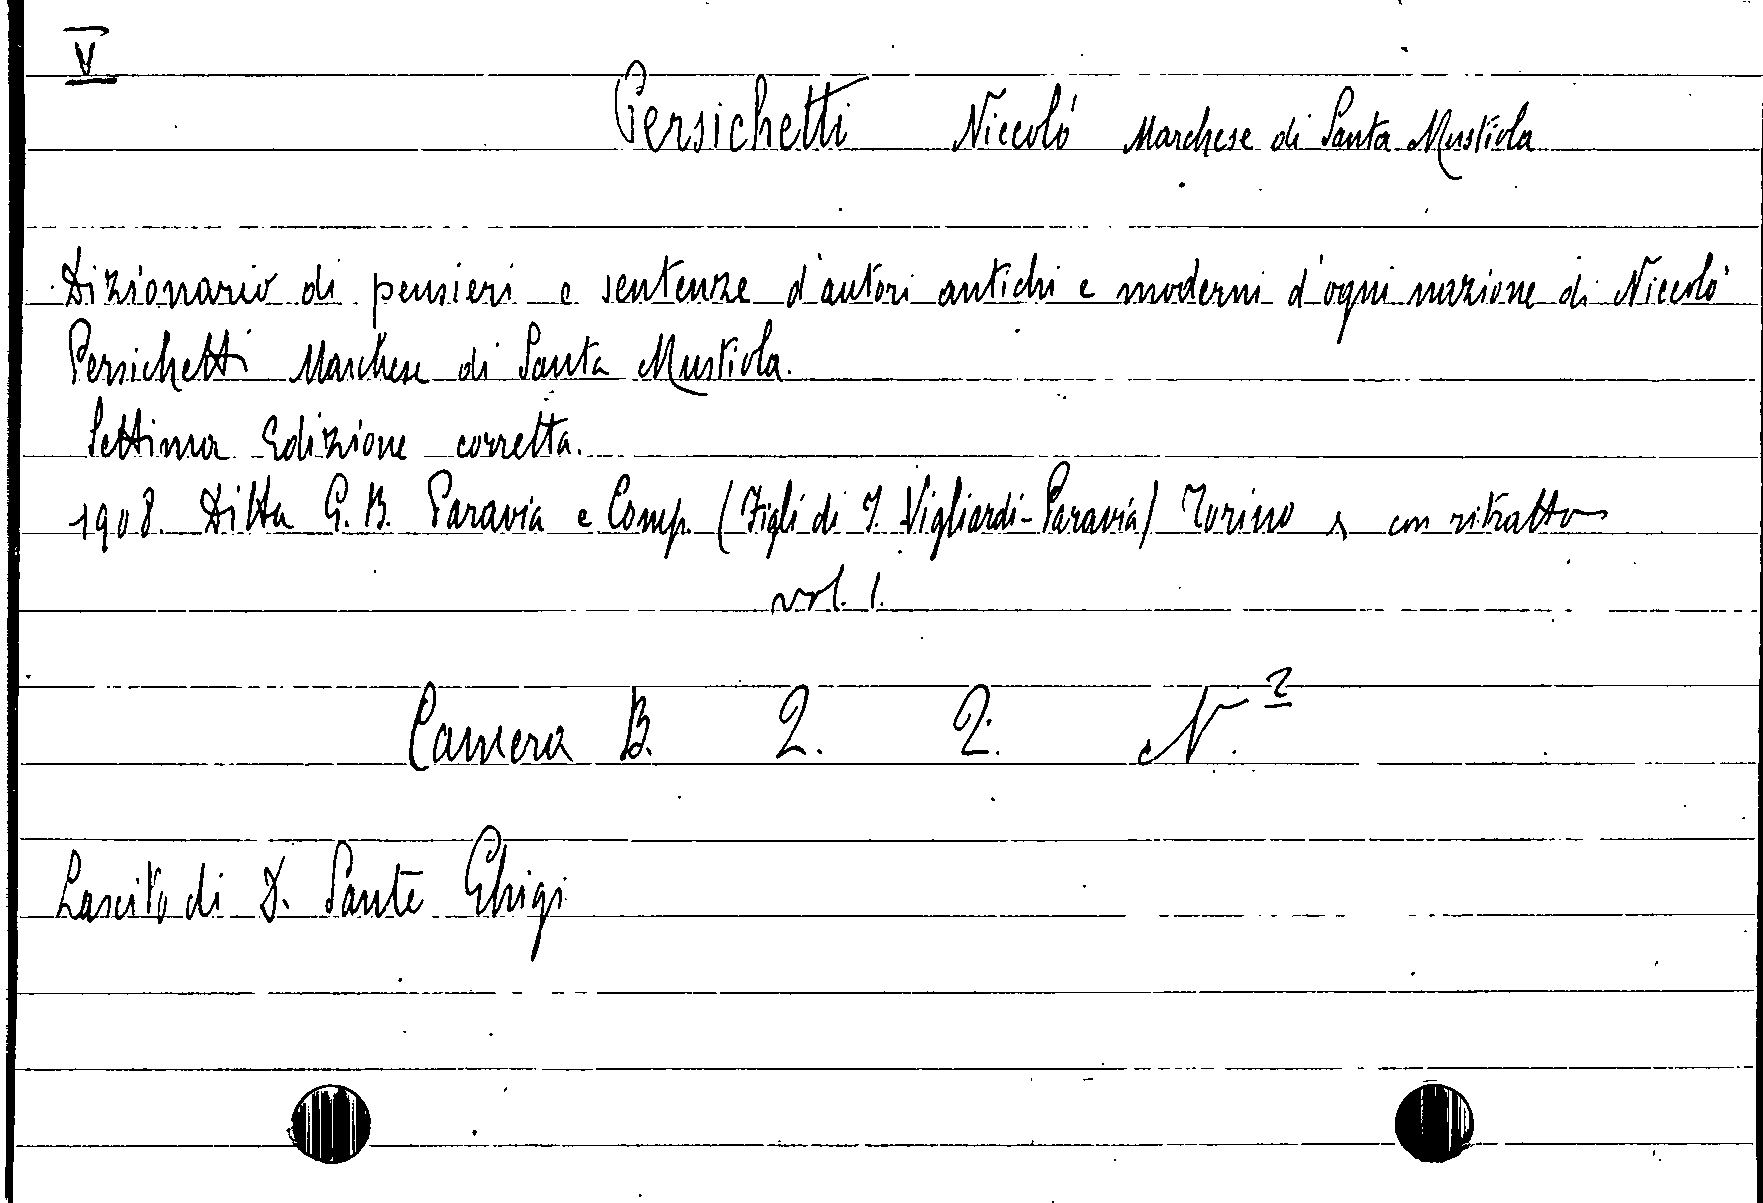 V
Persichetti Niccolò Marchese di Santa Mustiola
Dizionario di pensieri e sentenze d'autori antichi e moderni d'ogni nazione di Niccolò
Persichetti Marchese di Santa Mustiola.
Settima Edizione corretta.
1908. Ditta G.B. Paravia e Comp. (Figli di I. Vigliardi-Paravia) Torino con ritratto
vol. 1.
Camera B. 2. 2. N. 2
Lascito di D. Sante Ghigi